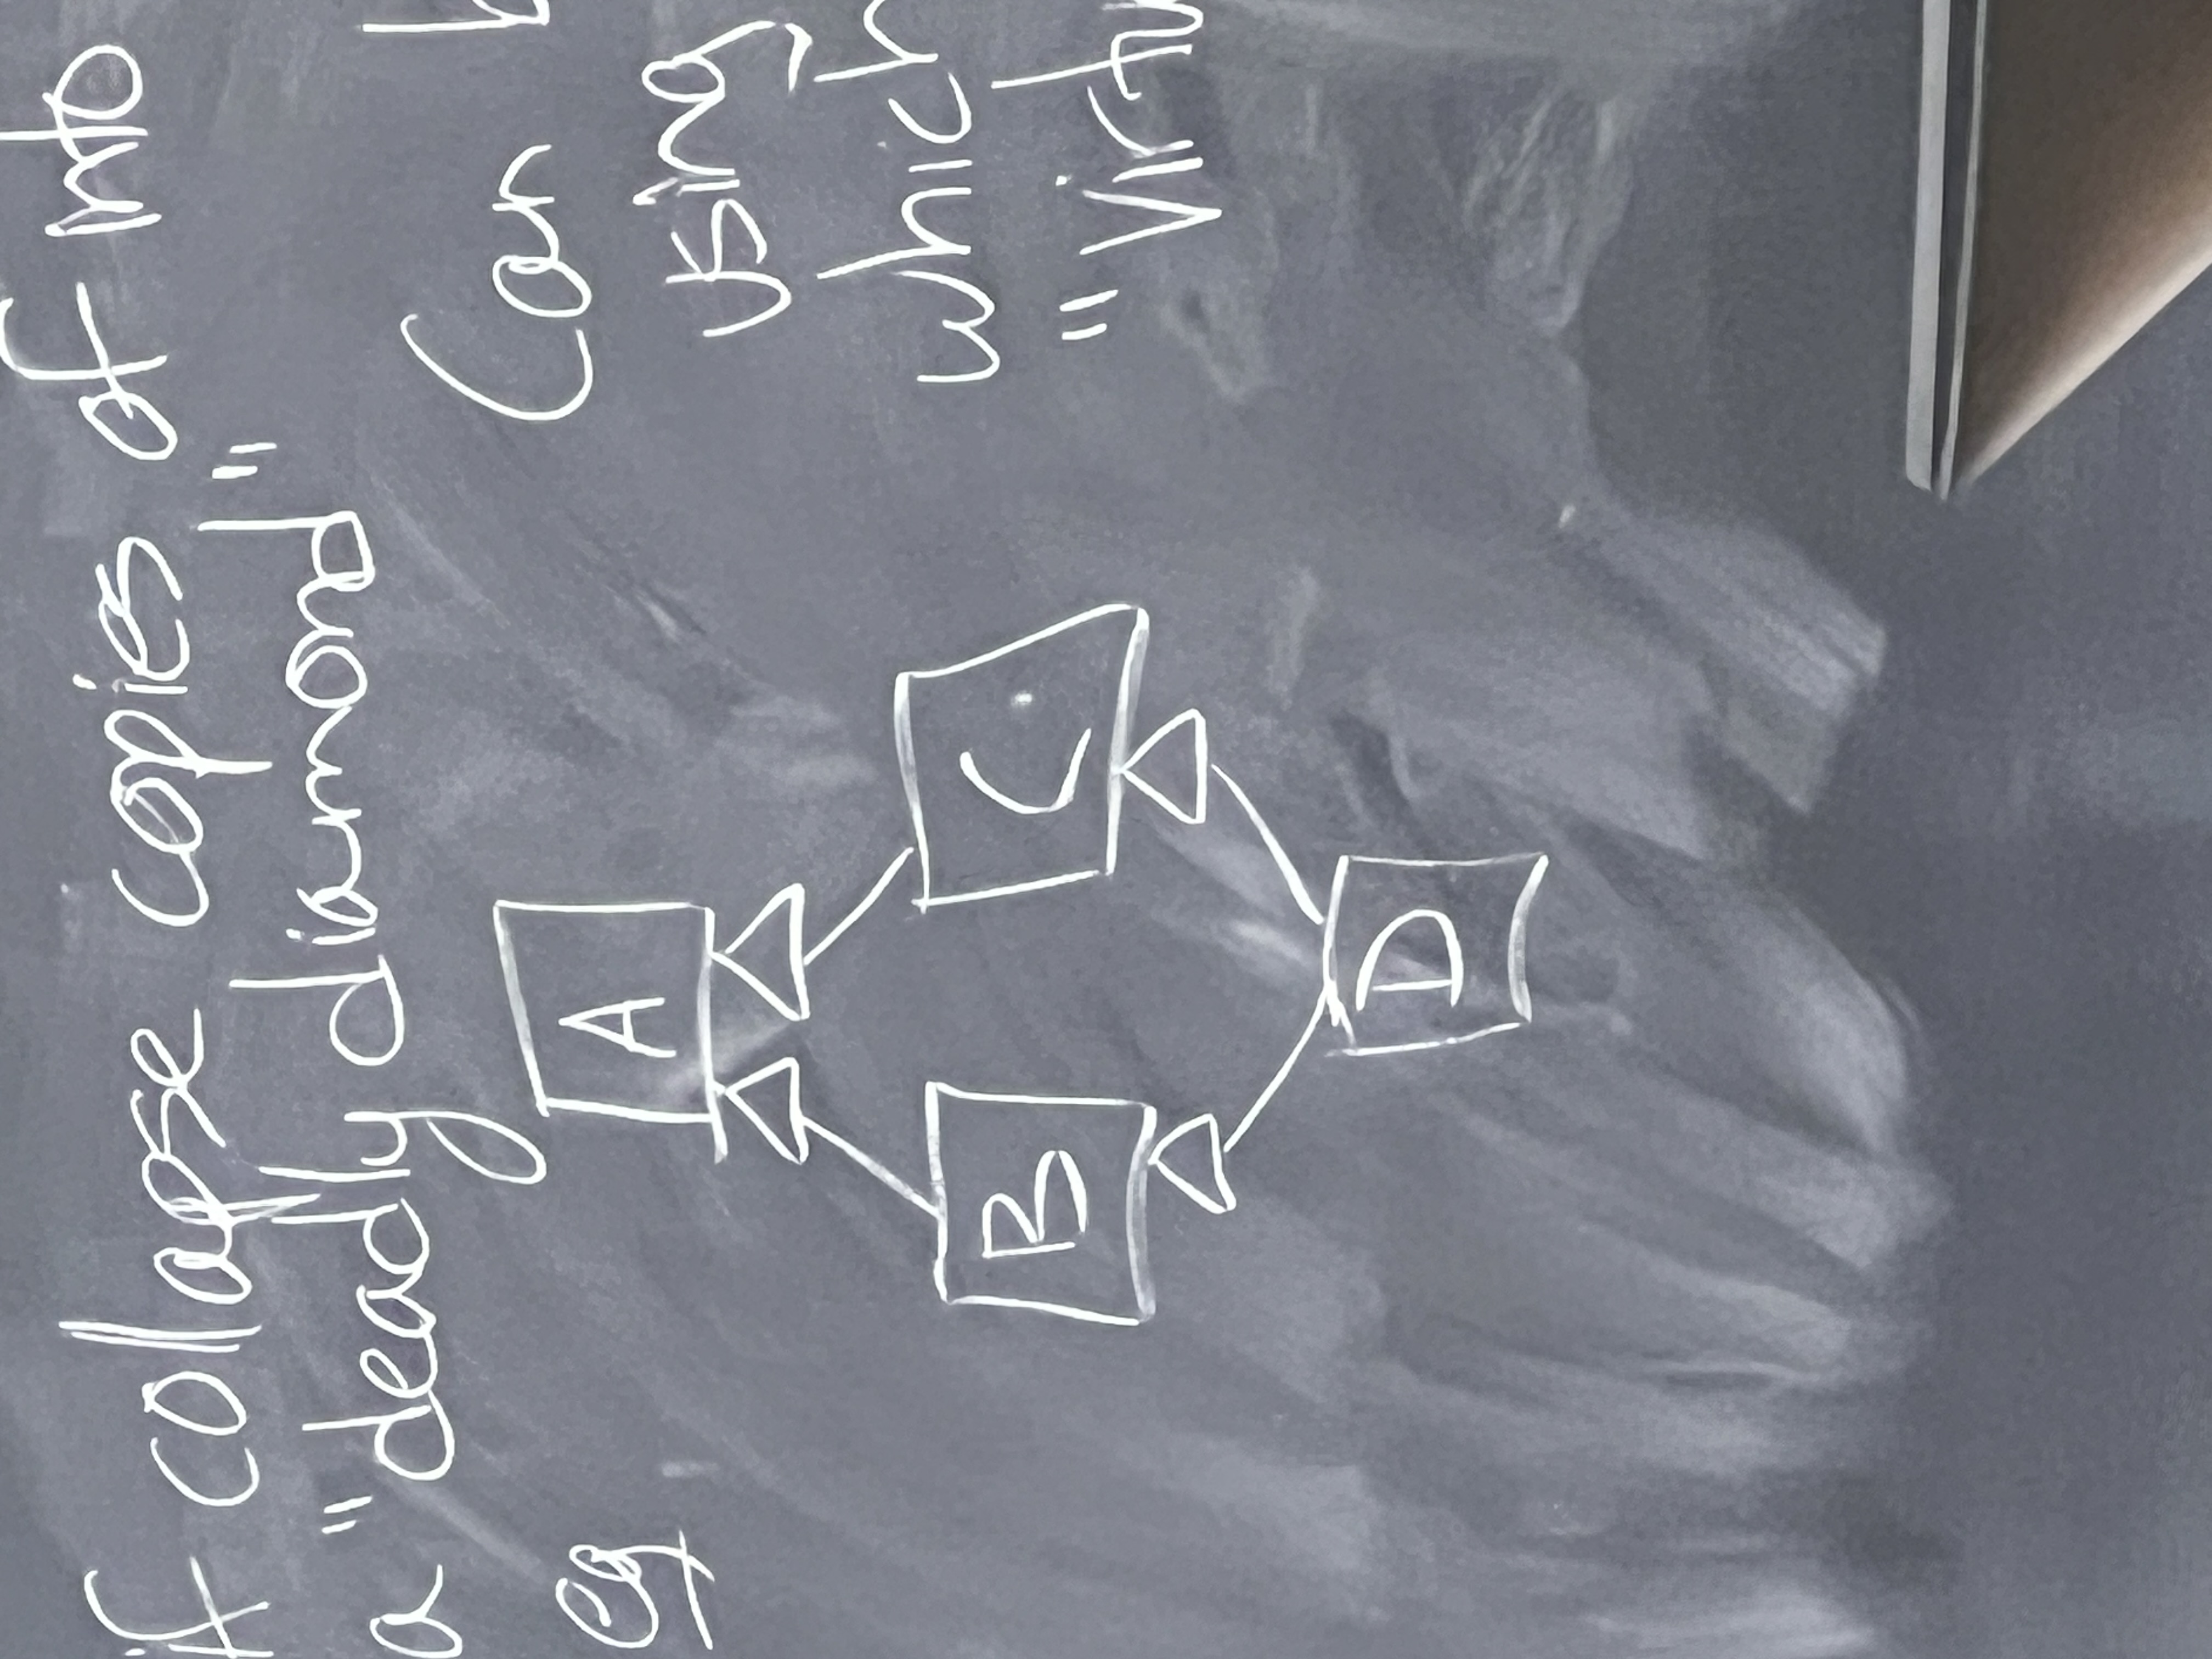 if collapse copies of into
a "deadly diamond"
eg
A
B
C
D
Can
using
which
"virtu